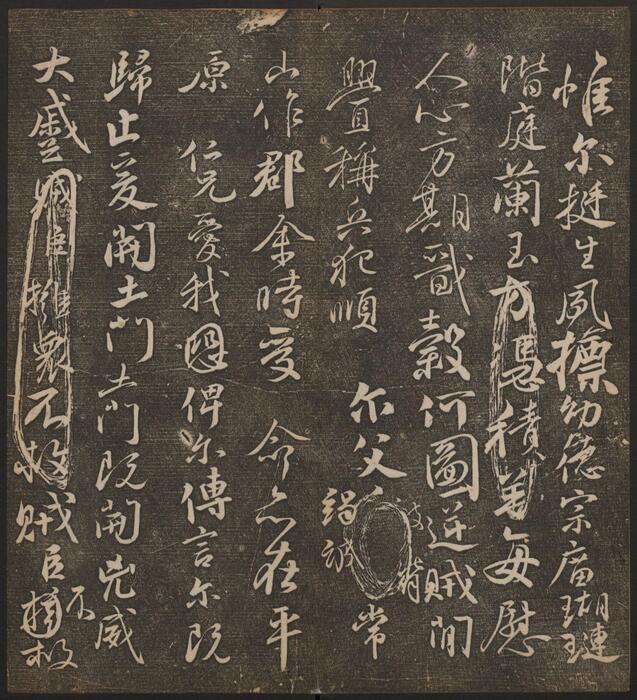 惟尔挺生夙標幼德宗廟瑚璉
階庭蘭玉方憑積善每慰
人心方期戩穀何圖逆賊閒
舋稱兵犯順尔父竭誠常
山作郡余時受命亦在平
原仁兄愛我俾尔傳言尔既
歸止爰開土門土門既開兇威
大蹙賊臣擁衆不救賊臣不擁救